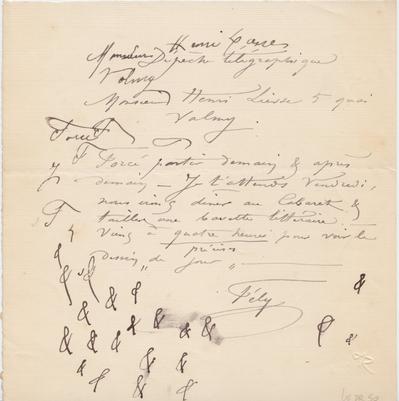 Henri
Monsieur Dépêche télégraphique
Valmy
Monsieur Henri Liesse 5 quai
Valmy.
Forcé
Forcé partir demain & après
demain – Je t'attends Vendredi,
nous irons dîner au Cabaret &
tailler une bavette littéraire
Viens à quatre heures pour voir le
dessin de jour précis
Fély
& &
& &
& & & & &
& & & &
& & &
& & &